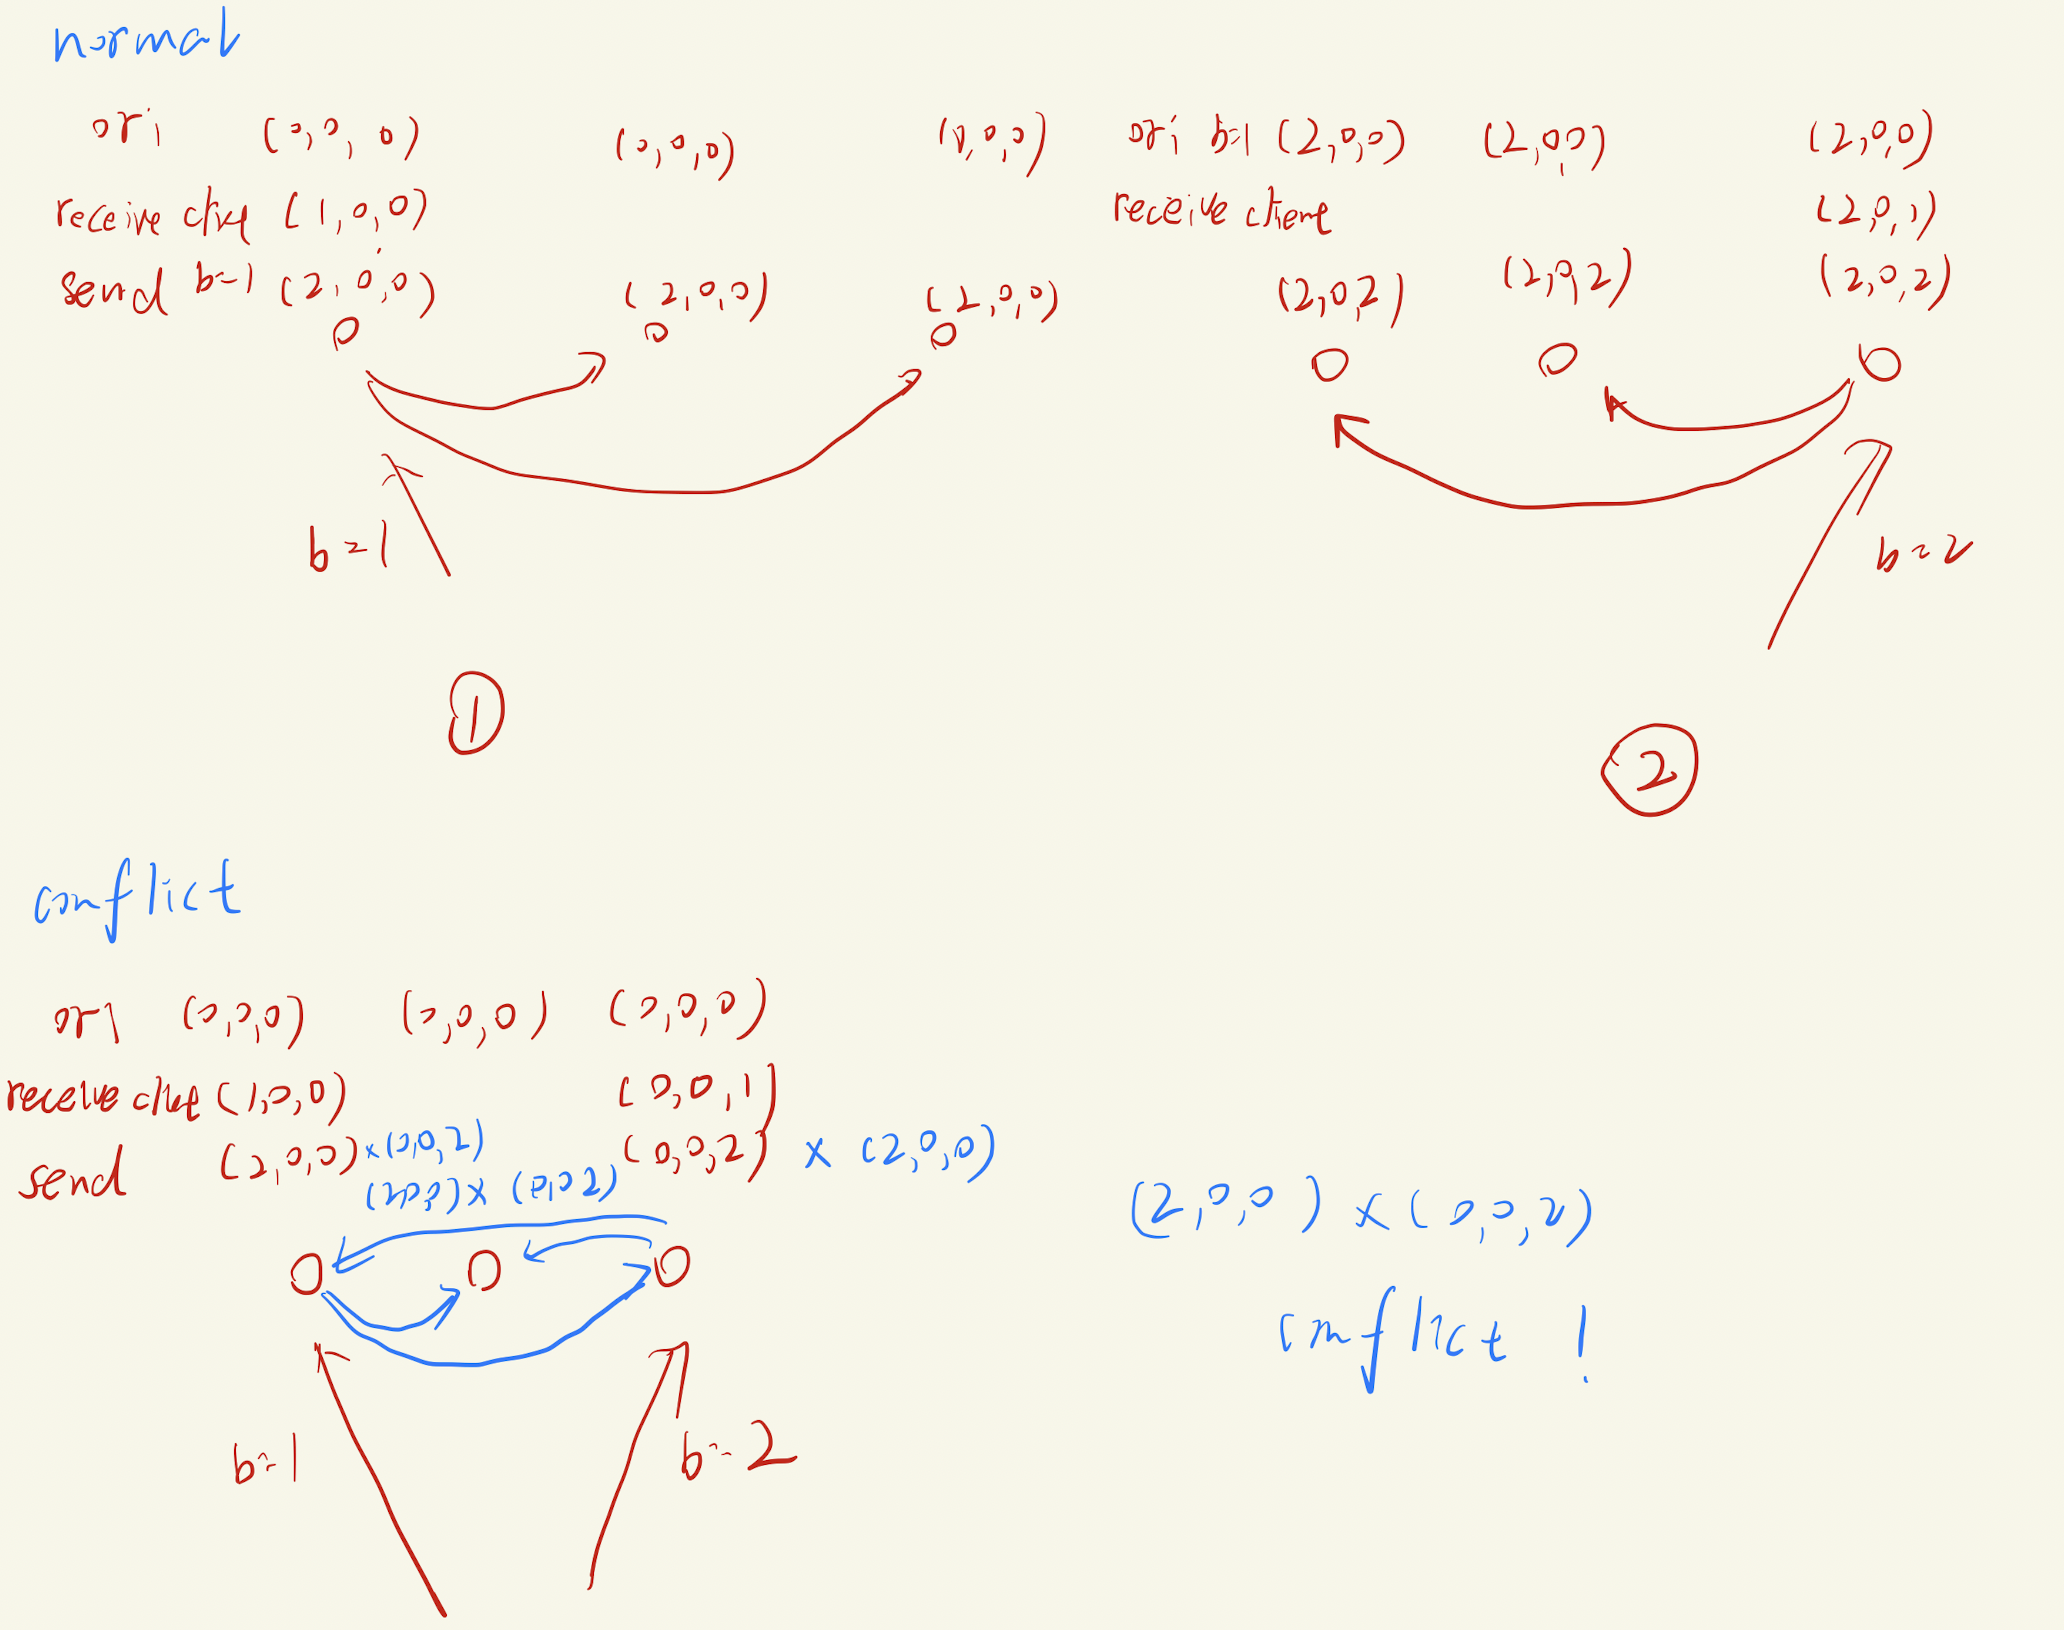 normal
ori (0,0,0) (0,0,0) (0,0,0)
receive (1,0,0)
send b=1 (2,0,0) (2,0,0) (2,0,0)
b=1
①
ori b=1 (2,0,0) (2,0,0) (2,0,0)
receive (2,0,1)
(2,0,2) (2,0,2) (2,0,2)
b=2
②
conflict
ori (0,0,0) (0,0,0) (0,0,0)
receive (1,0,0) (0,0,1)
send (2,0,0) x (0,0,2) (0,0,2) x (2,0,0)
(2,0,0) x (0,0,2)
b=1 b=2
(2,0,0) x (0,0,2)
conflict !